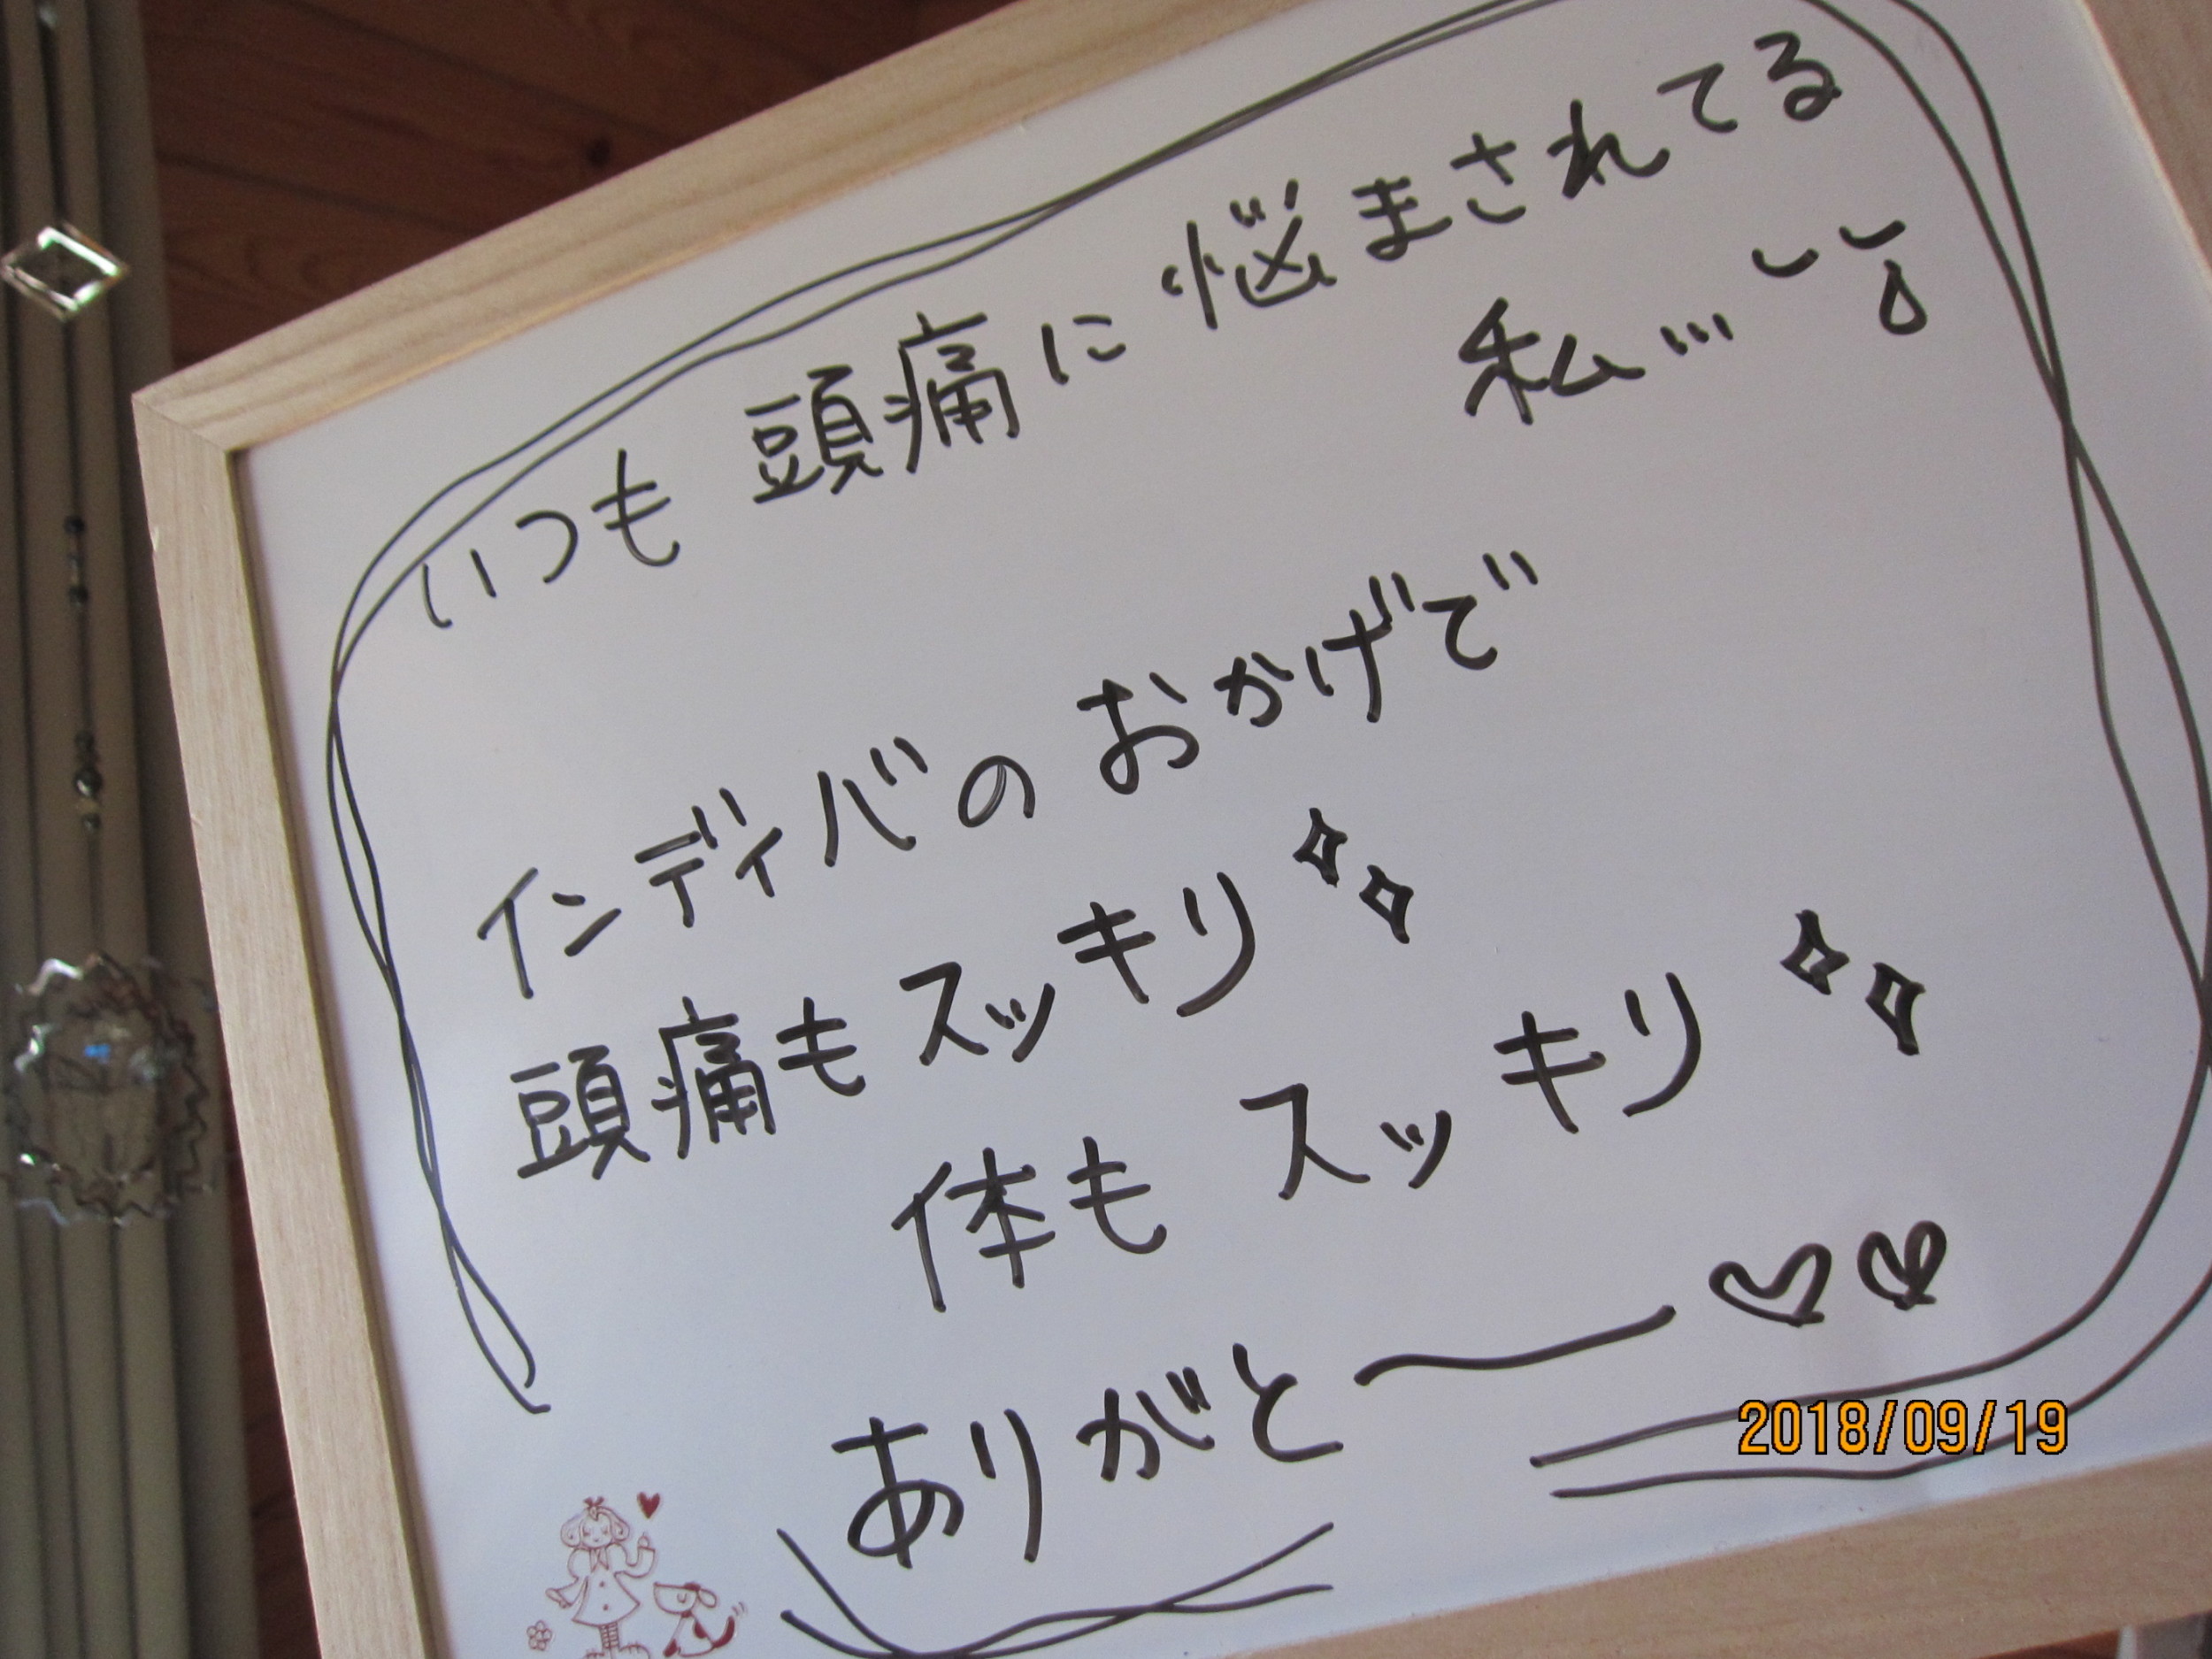 いつも 頭痛に悩まされてる
私…
インディバの おかげで
頭痛も スッキリ
体も スッキリ
ありがとー
2018/09/19